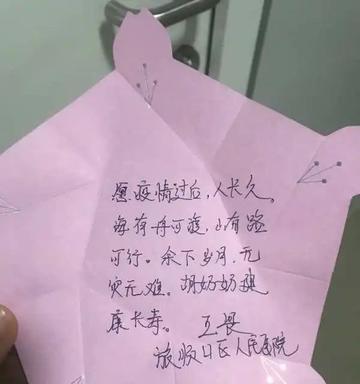 愿疫情过后，人长久。
海有舟可渡，山有路
可行。余下岁月，无
灾无难。胡奶奶健
康长寿。 王晨
旅顺口区人民医院